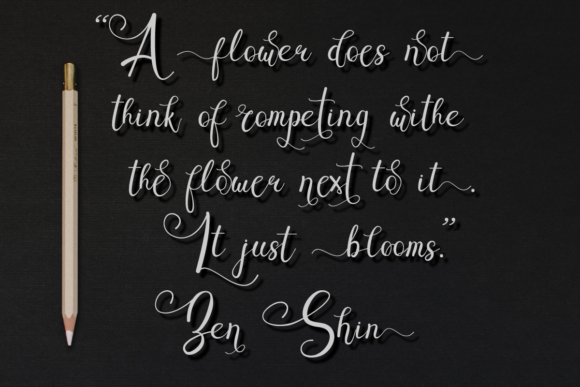 “A flower does not
think of competing withe
the flower next to it.
It just blooms.”
Zen Shin